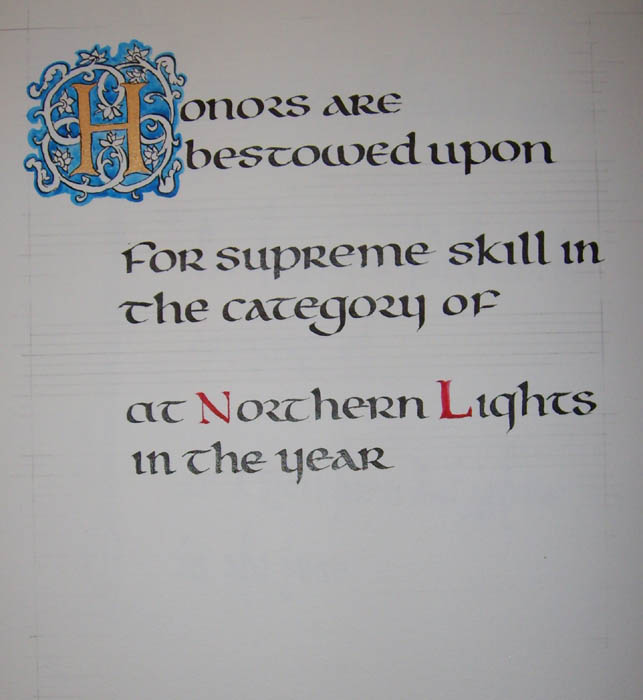 Honors are
bestowed upon
For supreme skill in
the category of
at Northern Lights
in the year